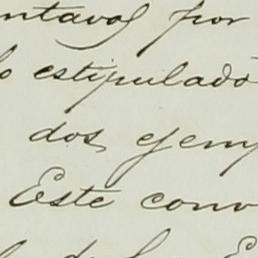 ntavos por
lo estipulado
dos ejemp
Este conv